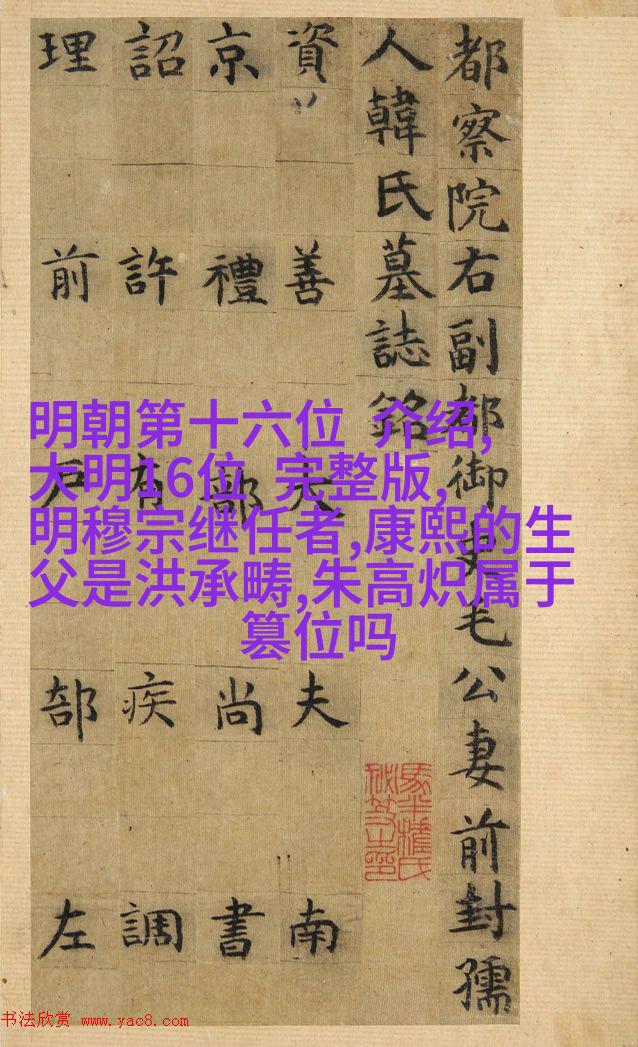 都察院右副都御史毛公妻前封孺
人韓氏墓誌銘
資善大夫南
京禮部尚書
詔許有疾調
理前戶部左
明朝第十六位 介绍,
大明16位 完整版,
明穆宗继任者,康熙的生
父是洪承畴,朱高炽属于
篡位吗
书法欣赏 www.yac8.com